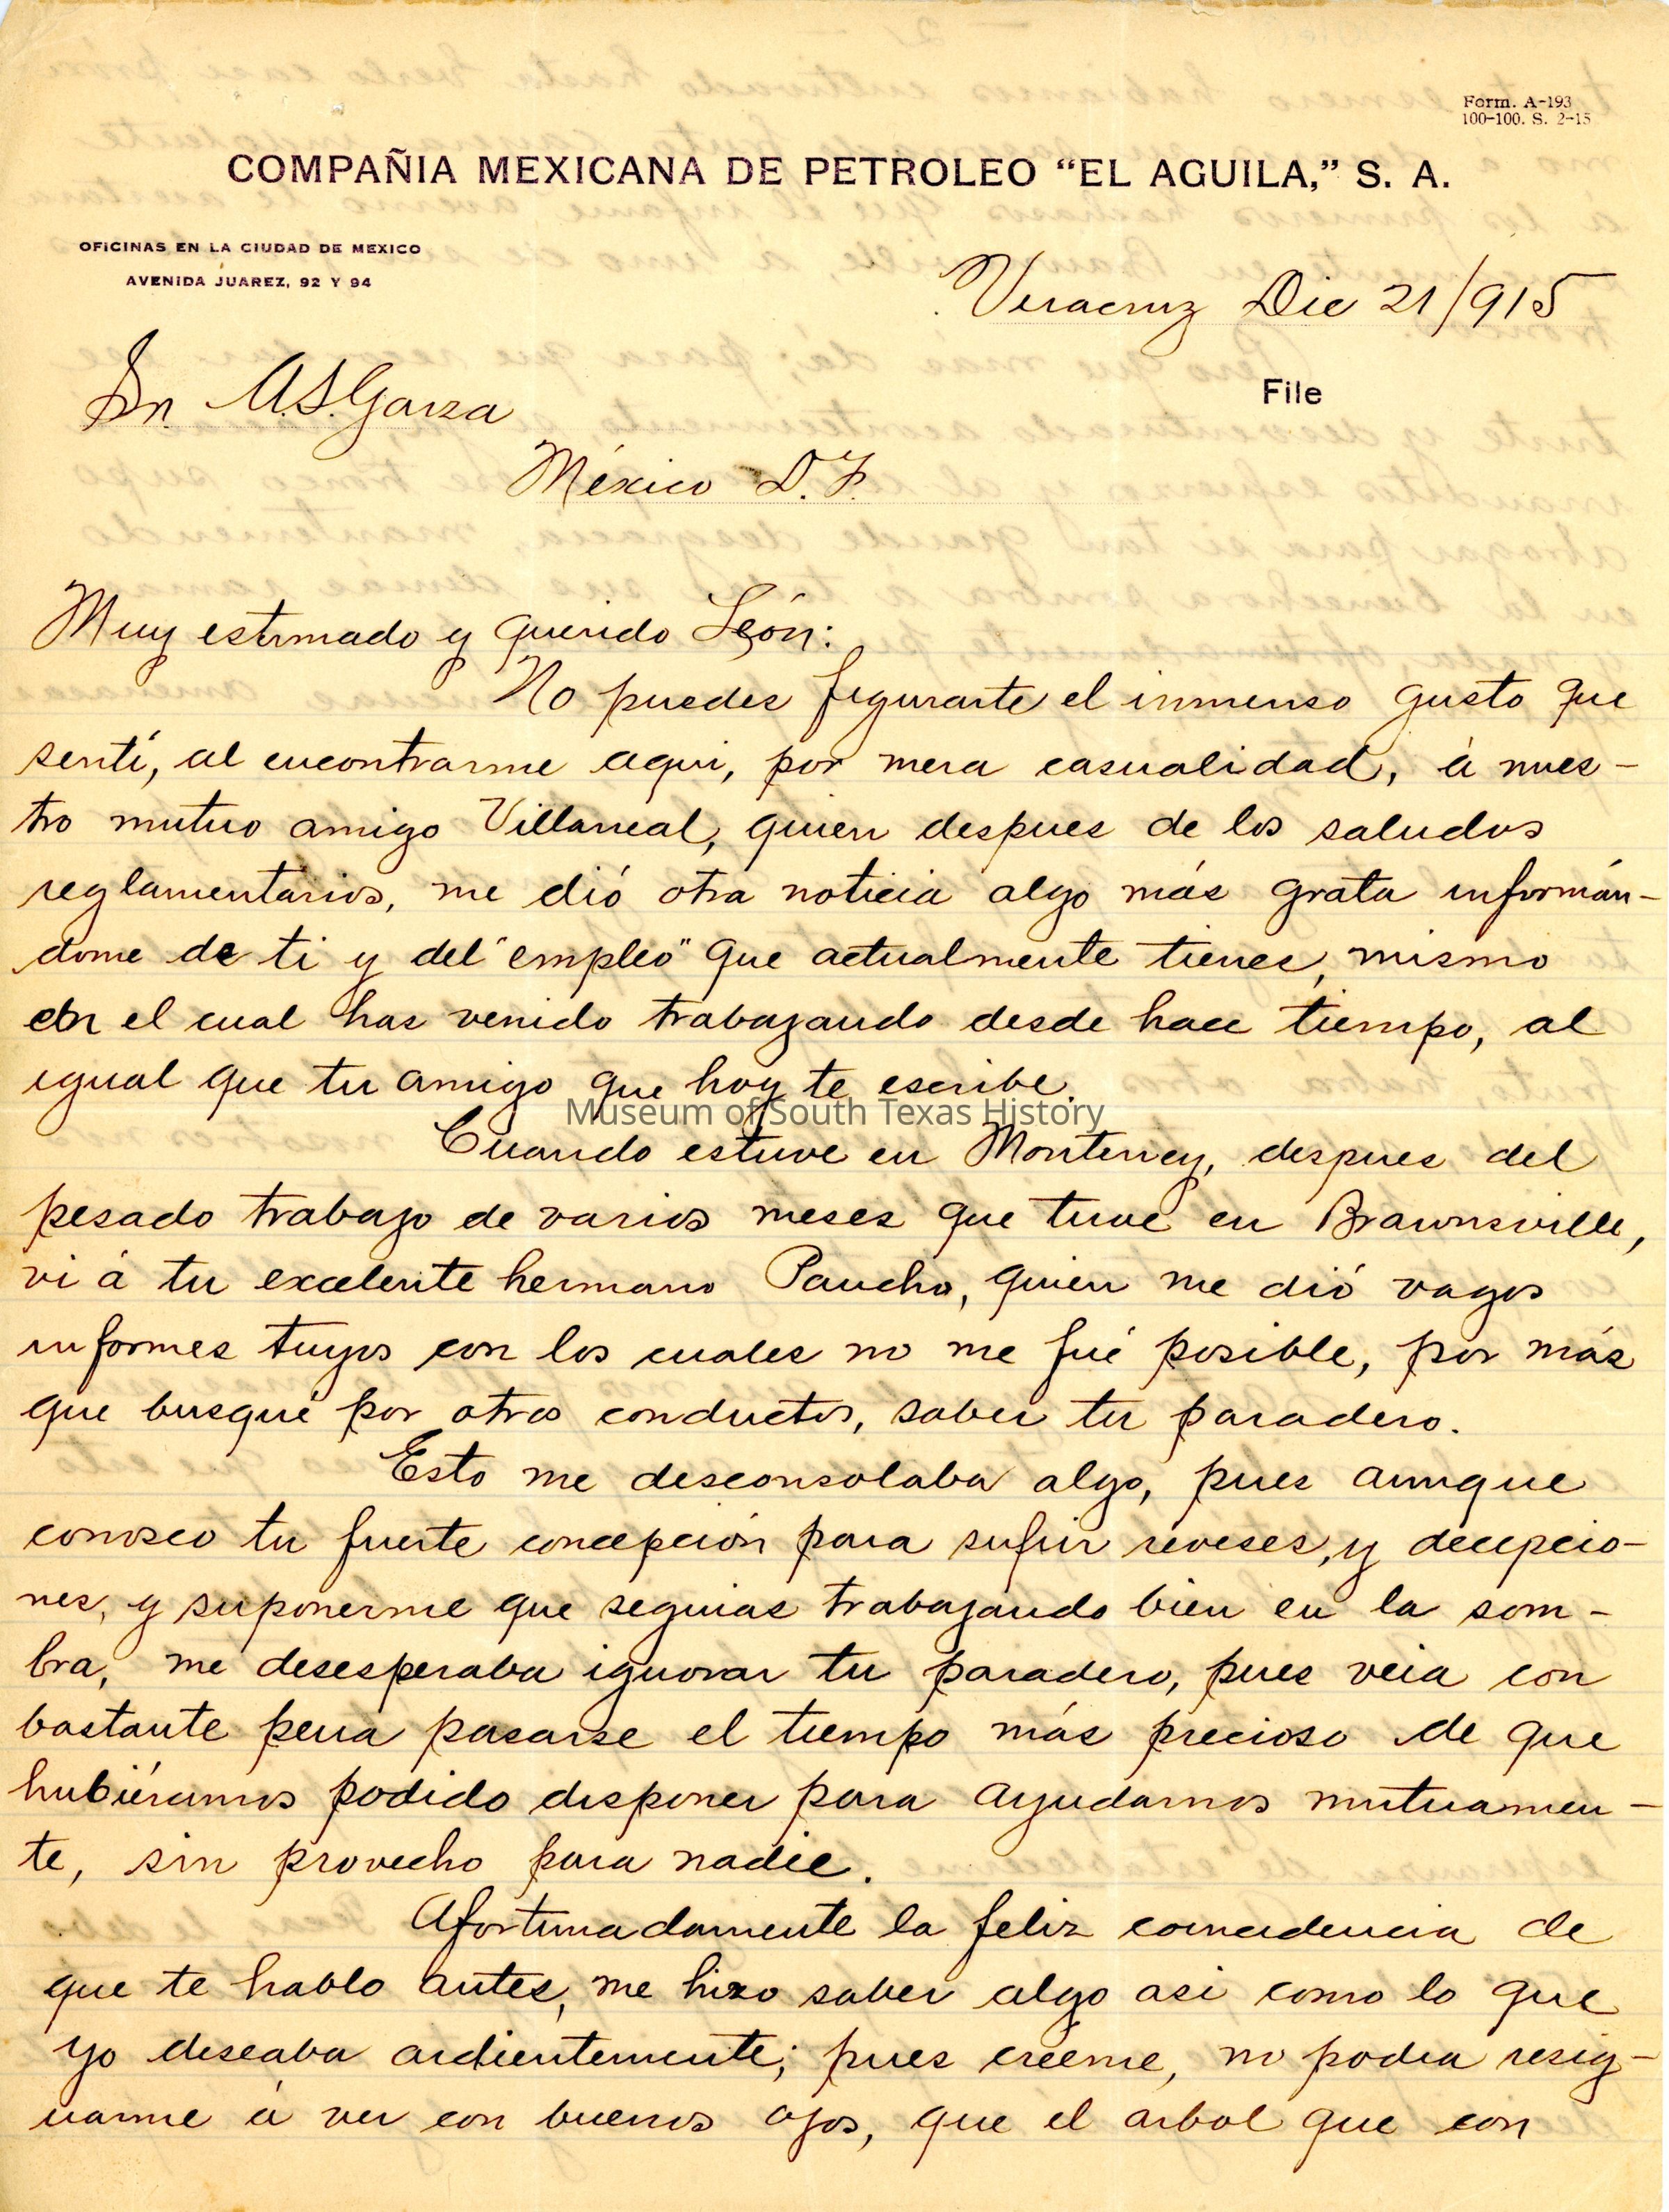 Form. A-193
100-100. S. 2-15
COMPAÑIA MEXICANA DE PETROLEO “EL AGUILA,” S. A.
OFICINAS EN LA CIUDAD DE MEXICO
AVENIDA JUAREZ, 92 Y 94
Veracruz Dic 21/915
File
Sr. A.S. Garza
México D.F.
Muy estimado y querido León:
No puedes figurarte el inmenso gusto que
sentí, al encontrarme aqui, por mera casualidad, á nues-
tro mutuo amigo Villarreal, quien despues de los saludos
reglamentarios, me dió otra noticia algo más grata informán-
dome de ti y del "empleo" que actualmente tienes, mismo
en el cual has venido trabajando desde hace tiempo, al
igual que tu amigo que hoy te escribe.
Museum of South Texas History
Cuando estuve en Monterrey, despues del
pesado trabajo de varios meses que tuve en Brawnsville,
vi á tu excelente hermano Pancho, quien me dió vagos
informes tuyos con los cuales no me fué posible, por más
que busqué por otros conductos, saber tu paradero.
Esto me desconsolaba algo, pues aunque
conosco tu fuerte concepción para sufrir reveses, y decepcio-
nes, y suponerme que seguias trabajando bien en la som-
bra, me desesperaba ignorar tu paradero, pues veia con
bastante pena pasarse el tiempo más precioso de que
hubiéramos podido disponer para ayudarnos mutuamen-
te, sin provecho para nadie.
Afortunadamente la feliz coincidencia de
que te hablo antes, me hizo saber algo asi como lo que
yo deseaba ardientemente; pues créeme, no podia resig-
narme á ver con buenos ojos, que el arbol que con